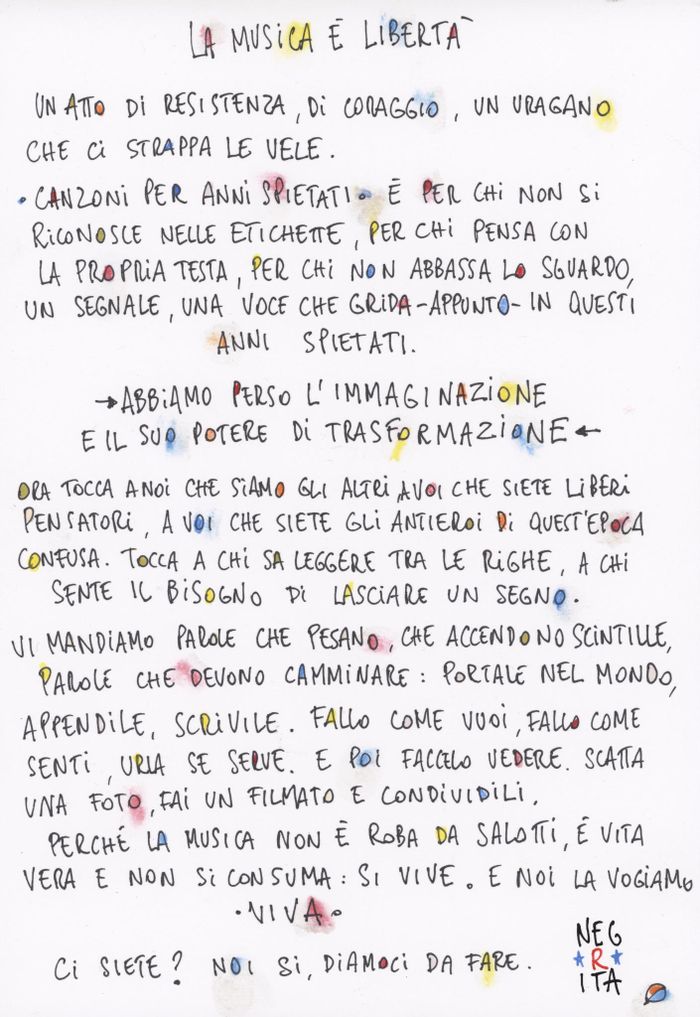 LA MUSICA È LIBERTÀ
UN ATTO DI RESISTENZA, DI CORAGGIO, UN URAGANO
CHE CI STRAPPA LE VELE.
•CANZONI PER ANNI SPIETATI• È PER CHI NON SI
RICONOSCE NELLE ETICHETTE, PER CHI PENSA CON
LA PROPRIA TESTA, PER CHI NON ABBASSA LO SGUARDO,
UN SEGNALE, UNA VOCE CHE GRIDA-APPUNTO-IN QUESTI
ANNI SPIETATI.
→ABBIAMO PERSO L'IMMAGINAZIONE
E IL SUO POTERE DI TRASFORMAZIONE←
ORA TOCCA A NOI CHE SIAMO GLI ALTRI, A VOI CHE SIETE LIBERI
PENSATORI, A VOI CHE SIETE GLI ANTIEROI DI QUEST'EPOCA
CONFUSA. TOCCA A CHI SA LEGGERE TRA LE RIGHE, A CHI
SENTE IL BISOGNO DI LASCIARE UN SEGNO.
VI MANDIAMO PAROLE CHE PESANO, CHE ACCENDONO SCINTILLE,
PAROLE CHE DEVONO CAMMINARE: PORTALE NEL MONDO,
APPENDILE, SCRIVILE. FALLO COME VUOI, FALLO COME
SENTI, URLA SE SERVE. E POI FACCELO VEDERE. SCATTA
UNA FOTO, FAI UN FILMATO E CONDIVIDILI.
PERCHÉ LA MUSICA NON È ROBA DA SALOTTI, È VITA
VERA E NON SI CONSUMA: SI VIVE. E NOI LA VOGIAMO
•VIVA•
CI SIETE? NOI SI, DIAMOCI DA FARE.
NEG
★R★
ITA